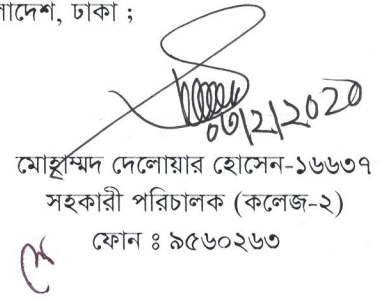 াদেশ, ঢাকা ;
০৩/2/2020
মোহাম্মদ দেলোয়ার হোসেন-১৬৬৩৭
সহকারী পরিচালক (কলেজ-২)
ফোন ঃ ৯৫৬০২৬৩